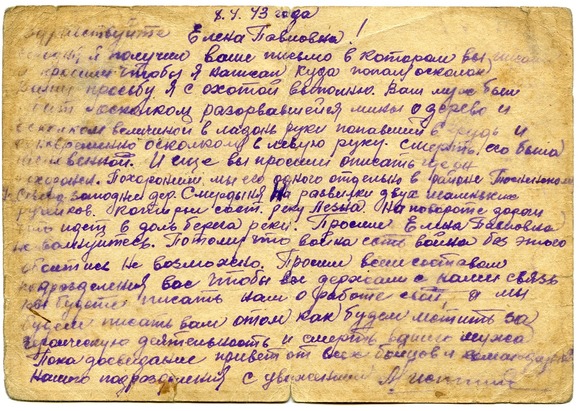 8.4.43 года
Здравствуйте Елена Павловна!
я получил ваше письмо в котором вы
просили чтобы я написал куда попал осколок
просьбу я с охотой выполню. Ваш муж был
осколком разорвавшейся мины о дерево и
осколком величиной в ладонь руки попавший в грудь и
осколком в левую руку. смерть его была
И еще вы просили описать где он
похоронен. Похоронили мы его одного отдельно в районе Тосненском
западнее дер. Смердыня на развилки двух маленьких
ручиков. которыи сост. реку Лезна. На повороте дороги
что идеть в доль берега реки. Просим Елена Павловна
не волнуйтесь. Потому что война есть война без этого
обоитись не возможно. Просим всем составом
подразделения вас чтобы вы держали с нами связь
вы будете писать нам о работе свей, а мы
будем писать вам о том как будем мстить за
героическую деятельность и смерть вашего мужа
Пока досвидание привет от всех бойцов и командиров
нашего подразделения с уважением